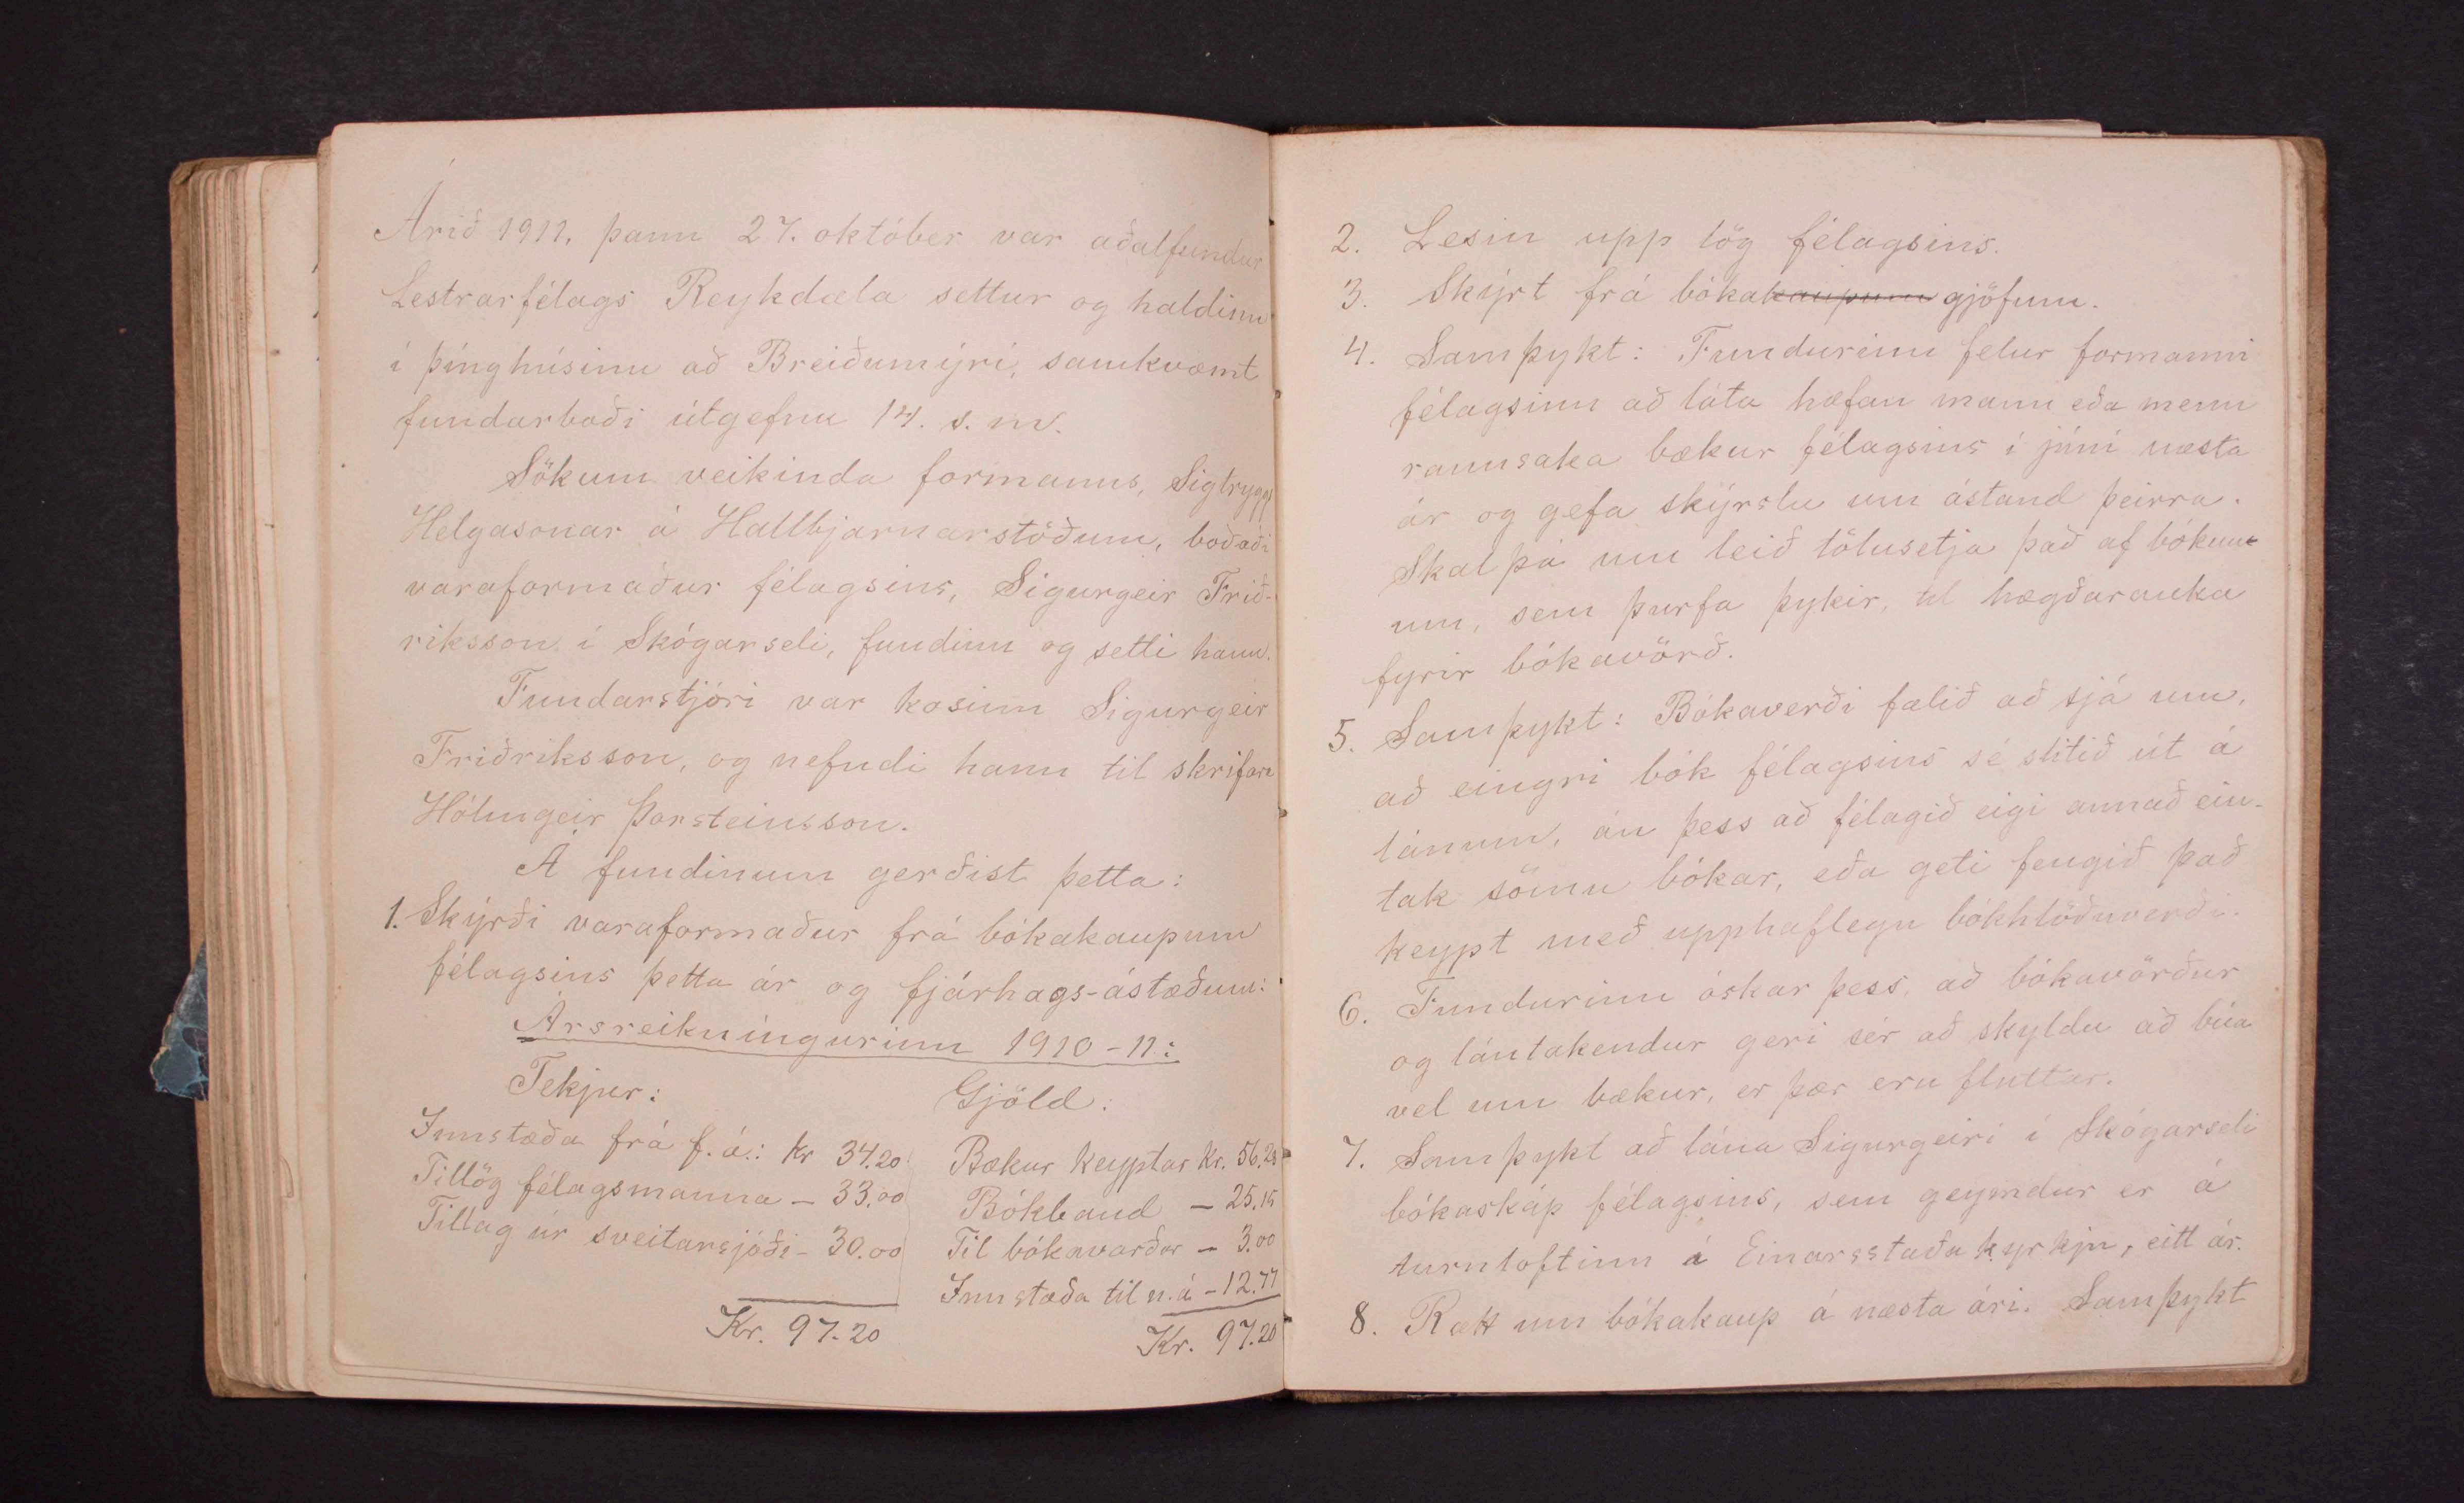 Árið 1911, þann 27. október var aðalfundur
Lestrarfélags Reykdæla settur og haldinn
í þinghúsinu að Breiðumýri, samkvæmt
fundarboði útgefnu 14. s. m.
Sökum veikinda formanns, Sigtryggs
Helgasonar á Hallbjarnarstöðum, boðaði
varaformaður félagsins, Sigurgeir Frið-
riksson í Skógarseli, fundinn og setti hann.
Fundarstjóri var kosinn Sigurgeir
Friðriksson, og nefndi hann til skrifara
Hólmgeir Þorsteinsson.
Á fundinum gerðist þetta:
1. Skýrði varaformaður frá bókakaupum
félagsins þetta ár og fjárhags-ástæðum:
Ársreikníngurinn 1910-11:
Tekjur:
Innstæða frá f. á.: kr 34.20
Tillög félagsmanna - 33.00
Tillag úr sveitarsjóði - 30.00
Kr. 97.20
Gjöld:
Bækur keyptar Kr. 56.28
Bókband - 25.15
Til bókavarðar - 3.00
Innstæða til n. á - 12.77
Kr. 97.20
2. Lesin upp lög félagsins.
3. Skýrt frá bókakaupum gjöfum.
4. Samþykt: Fundurinn felur formanni
félagsinn að láta hæfan mann eða menn
rannsaka bækur félagsins í júní næsta
ár og gefa skýrslu um ástand þeirra.
Skal þá um leið tölusetja það af bókun-
um, sem þurfa þykir, til hægðarauka
fyrir bókavörð.
5. Samþykt: Bókaverði falið að sjá um,
að eingri bók félagsins sé slitið út á
lánum, án þess að félagið eigi annað ein-
tak sömu bókar, eða geti fengið það
keypt með upphaflegu bókhlöðuverði.
6. Fundurinn óskar þess, að bókavörður
og lántakendur geri sér að skyldu að búa
vel um bækur, er þær eru fluttar.
7. Samþykt að lána Sigurgeiri í Skógarseli
bókaskáp félagsins, sem geymdur er á
turnloftinu á Einarsstaðakyrkju, eitt ár.
8. Rætt um bókakaup á næsta ári. Samþykt